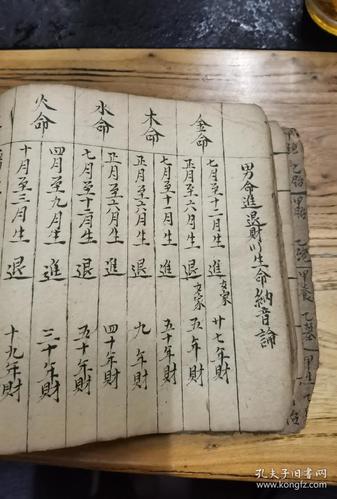 男命進退財以生命納音論
金命
七月至十二月生 進 女家 廿七年財
正月至六月生 退 女家 五年財
木命
七月至十二月生 進 五十年財
正月至六月生 退 九年財
水命
正月至六月生 進 四十年財
七月至十二月生 退 五十年財
火命
四月至九月生 進 三十年財
十月至三月生 退 十九年財
乙胎
乙絕
甲養
乙墓
孔夫子旧书网
www.kongfz.com